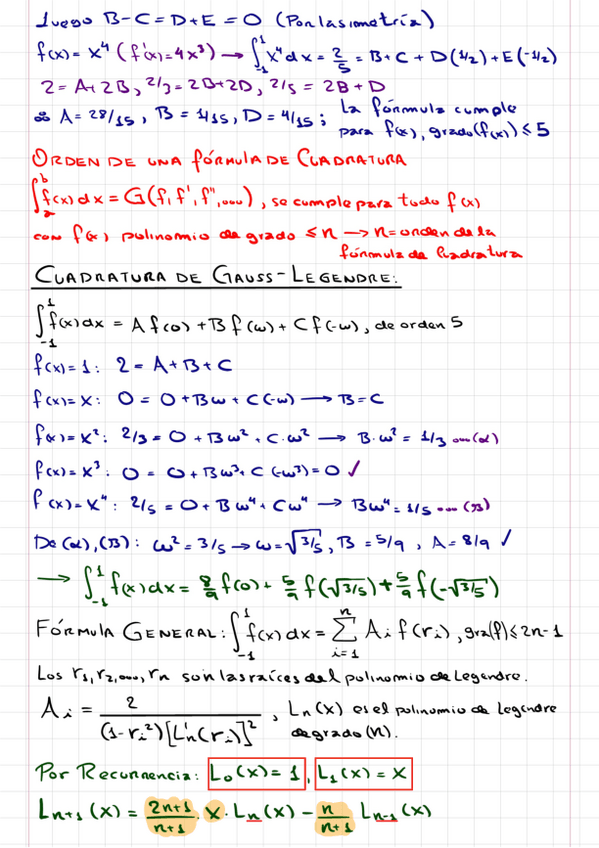 luego B-C=D+E=0 (Por la simetría)
f(x)= x⁴ (f'(x)=4x³) → ∫₋₁¹ x⁴dx = 2/5 = B+C+D(1/2)+E(-1/2)
2=A+2B, 2/3=2B+2D, 2/5=2B+D
∴ A=28/15, B=1/15, D=4/15; La fórmula cumple
para f(x), grado(f(x)) ≤ 5
ORDEN DE UNA FÓRMULA DE CUADRATURA
∫ₐᵇ f(x)dx = G(f, f', f'', ...), se cumple para todo f(x)
con f(x) polinomio de grado ≤ n → n=orden de la
fórmula de Cuadratura
CUADRATURA DE GAUSS-LEGENDRE:
∫₋₁¹ f(x)dx = A f(0) + B f(ω) + C f(-ω), de orden 5
f(x)=1: 2=A+B+C
f(x)=x: 0=0+Bω+C(-ω) → B=C
f(x)=x²: 2/3=0+Bω²+C·ω² → B·ω²=1/3 ...(α)
f(x)=x³: 0=0+Bω³+C(-ω³)=0 ✓
f(x)=x⁴: 2/5=0+Bω⁴+Cω⁴ → Bω⁴=1/5 ...(β)
De (α),(β): ω²=3/5 → ω=√3/5, B=5/9, A=8/9 ✓
→ ∫₋₁¹ f(x)dx = 8/9 f(0) + 5/9 f(√3/5) + 5/9 f(-√3/5)
FÓRMULA GENERAL: ∫₋₁¹ f(x)dx = Σᵢ₌₁ⁿ Aᵢ f(rᵢ), gra(f) ≤ 2n-1
Los r₁, r₂, ..., rn son las raíces del polinomio de Legendre.
Aᵢ = 2/((1-rᵢ²)[L'n(rᵢ)]²), Ln(x) es el polinomio de Legendre
de grado (n).
Por Recurrencia: L₀(x)=1, L₁(x)=x
Lₙ₊₁(x) = (2n+1)/(n+1) · x · Lₙ(x) - n/(n+1) Lₙ₋₁(x)